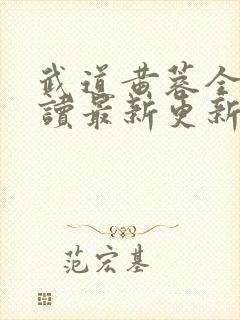 武道黄蓉全
讀最新更新
范宏基